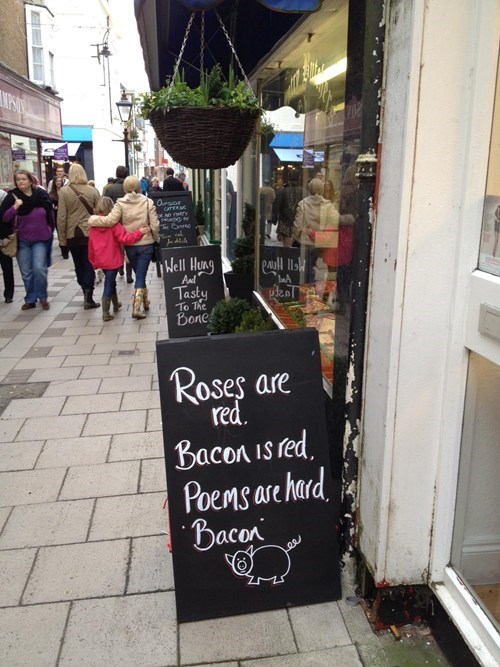 Roses are
red.
Bacon is red.
Poems are hard.
Bacon
Well Hung
And
Tasty
To The
Bone
Outside